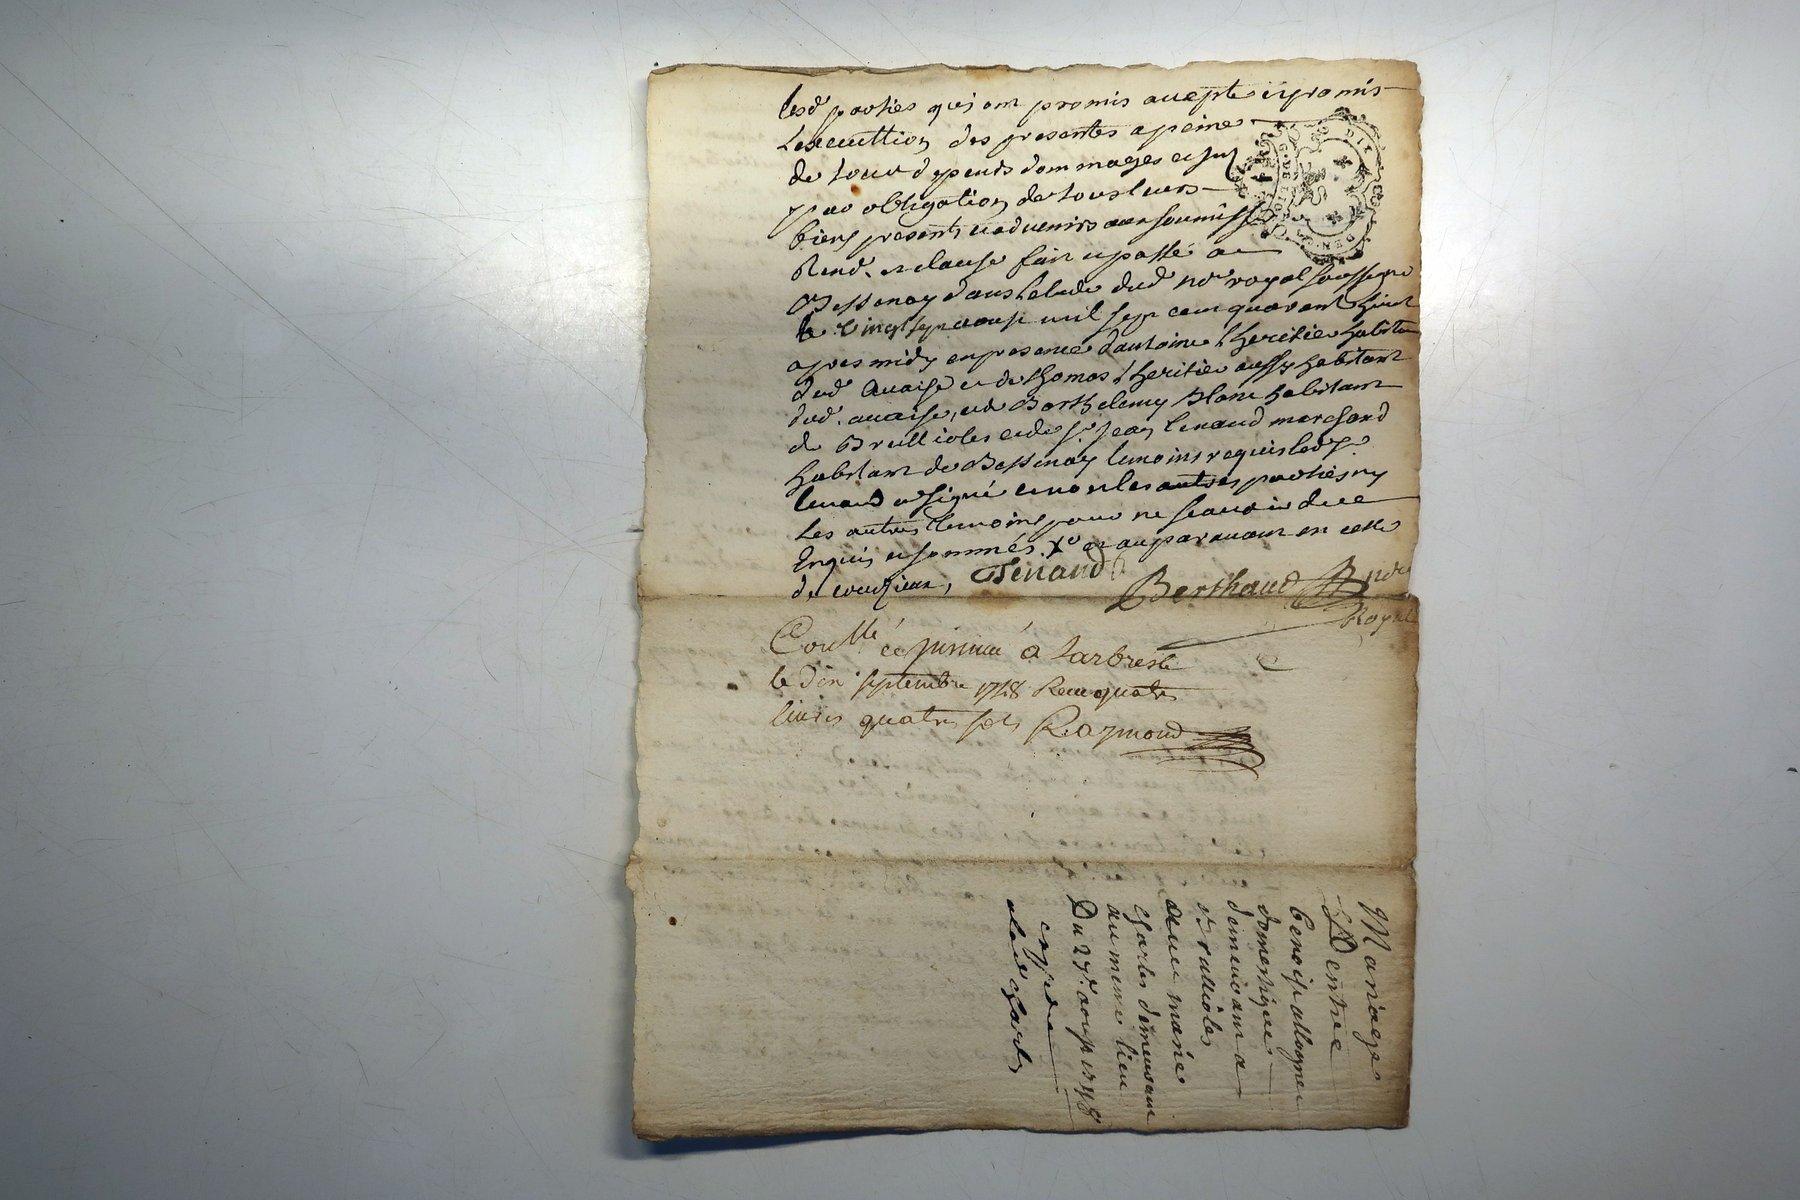 lesd parties qui ont promis accepte et promis
Lexecuttion des presentes a peine
de tous depents dommages et
par obligation de tous leurs
biens presents et advenirs
Rend. et clause fait et passé a
Bessenay dans letude dud nore royal soussigne
le vingt sept aoust mil sept cent quarent huict
apres midy en presence dantoine lheritier habitant
dud avaise et de thomas lheritier aussy habitant
dud. avaise, et de Barthelemy Blanc habitant
de Brullioles et de sr. Jean Tenaud marchand
habitant de Bessenay temoins requis led sr.
Tenaud a signé et non les autres parties ny
les autres temoins pour ne scavoir de ce
Enquis et sommés. et auparavant en celle
de courzieux,
Tenaud
Berthaud nore
Royal
Conllé à Larbresle
le dix septembre 1748 Receu quatre
livres quatre sols Raymond
Mariage
Dentre
Benoist
domestique
demeurant a
Brulliôles
avec marie
charles demeurant
au meme lieu
Du 27e. aoust 1748
expedie